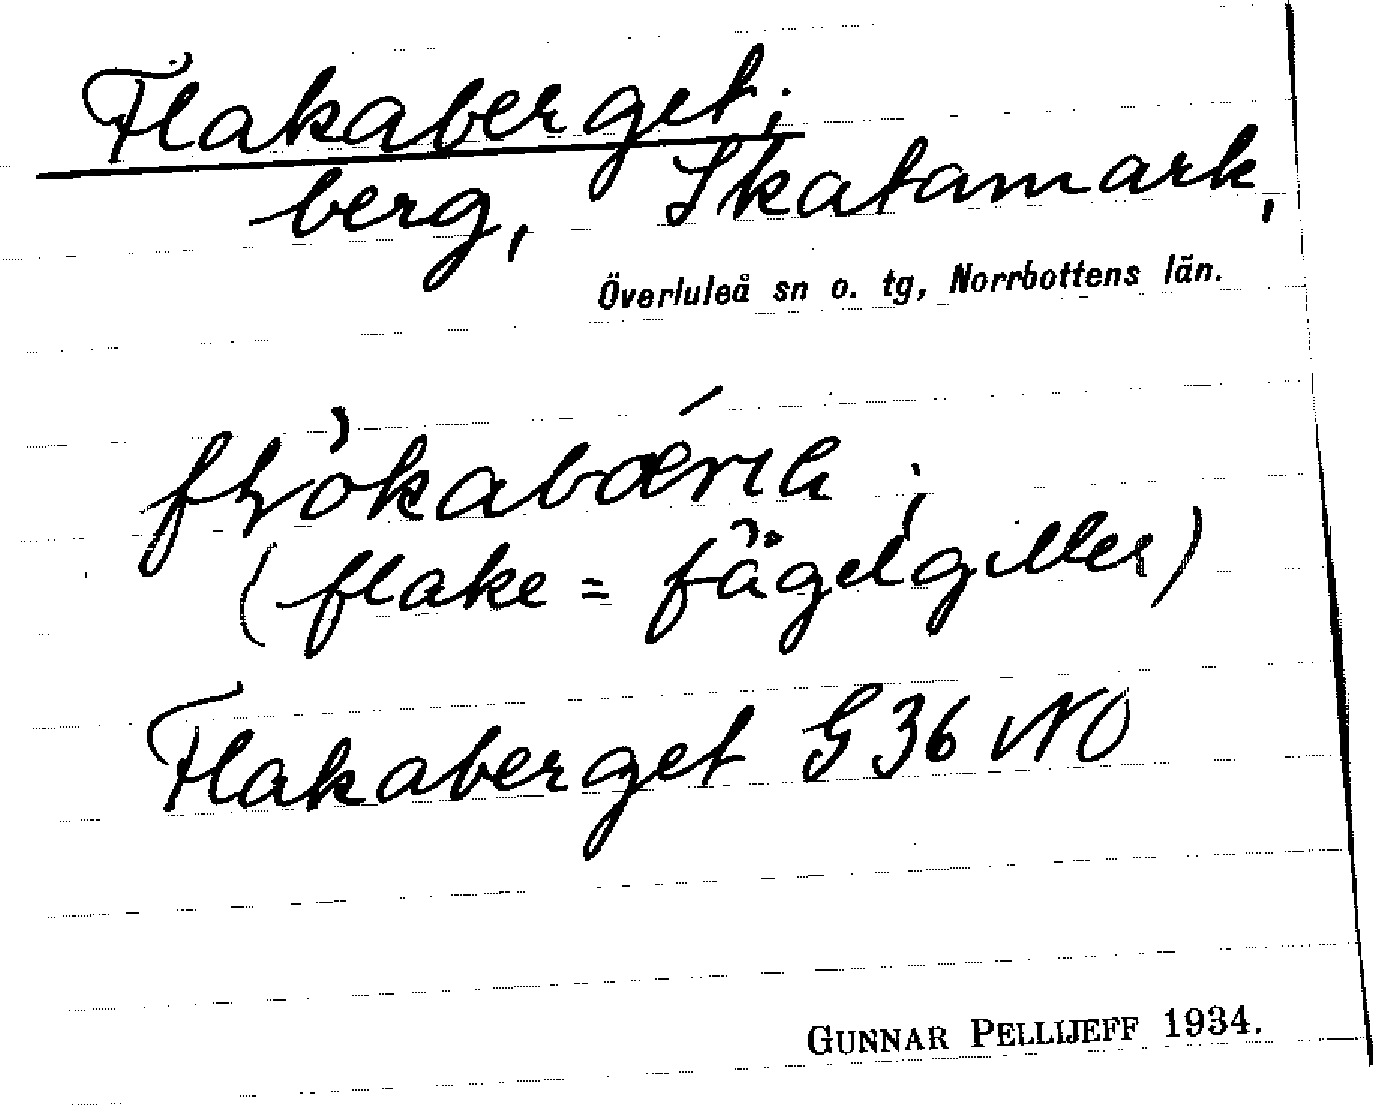 Flakaberget;
berg, Skatamark,
Överluleå sn o. tg, Norrbottens län.
(flake = fågelgiller)
Flakaberget G 36 NO
GUNNAR PELLIJEFF 1934.